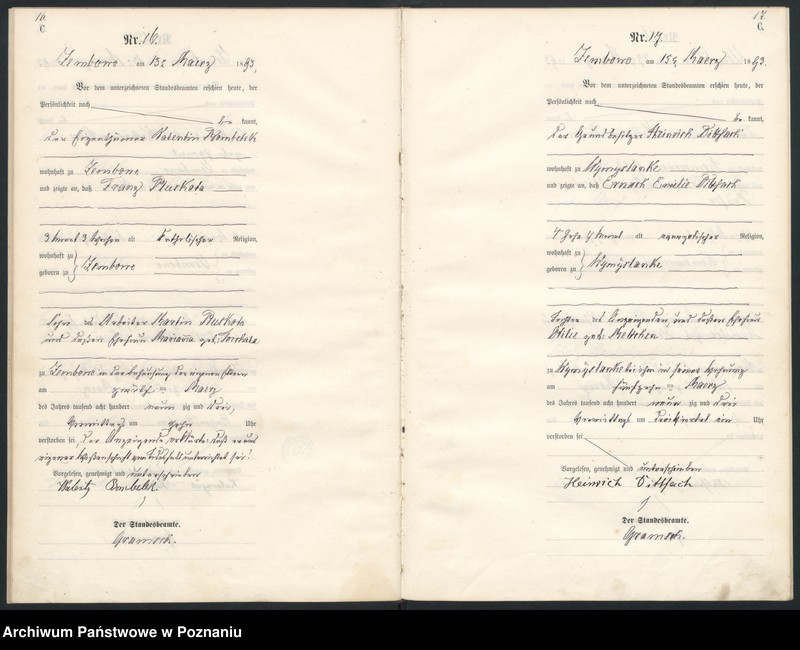 16.
C.
Nr. 16.
Zembowo am 13ten Maerz 1893,
Vor dem unterzeichneten Standesbeamten erschien heute, der
Persönlichkeit nach
be kannt,
der Eigenthümer Valentin
wohnhaft zu Zembowo
und zeigte an, daß Franz
3 Monat 3 Wochen alt katholischer Religion,
wohnhaft zu
geboren zu Zembowo
Sohn des Arbeiter Martin
und dessen Ehefrau Marianna geb:
zu Zembowo in der Behausung der
am zwölf ten Maerz
des Jahres tausend acht hundert neun zig und drei,
Vormittags um zehn Uhr
verstorben sei, der Anzeigende erklärte daß er aus
eigener Wissenschaft vom Todesfall unterrichtet sei!
Vorgelesen, genehmigt und unterschrieben
Der Standesbeamte.
17.
C.
Nr. 17.
Zembowo am 15ten Maerz 1893.
Vor dem unterzeichneten Standesbeamten erschien heute, der
Persönlichkeit nach
be kannt,
der Grundbesitzer Heinrich Dittfach
wohnhaft zu
und zeigte an, daß Emilie Dittfach
4 Jahr 4 Monat alt evangelischer Religion,
wohnhaft zu
geboren zu
Tochter des Anzeigenden, und dessen Ehefrau
geb:
zu bei ihm in seiner Wohnung
am fünfzehn ten Maerz
des Jahres tausend acht hundert neun zig und drei
Vormittags um dreiviertel ein Uhr
verstorben sei
Vorgelesen, genehmigt und unterschrieben
Heinrich Dittfach
Der Standesbeamte.
Archiwum Państwowe w Poznaniu